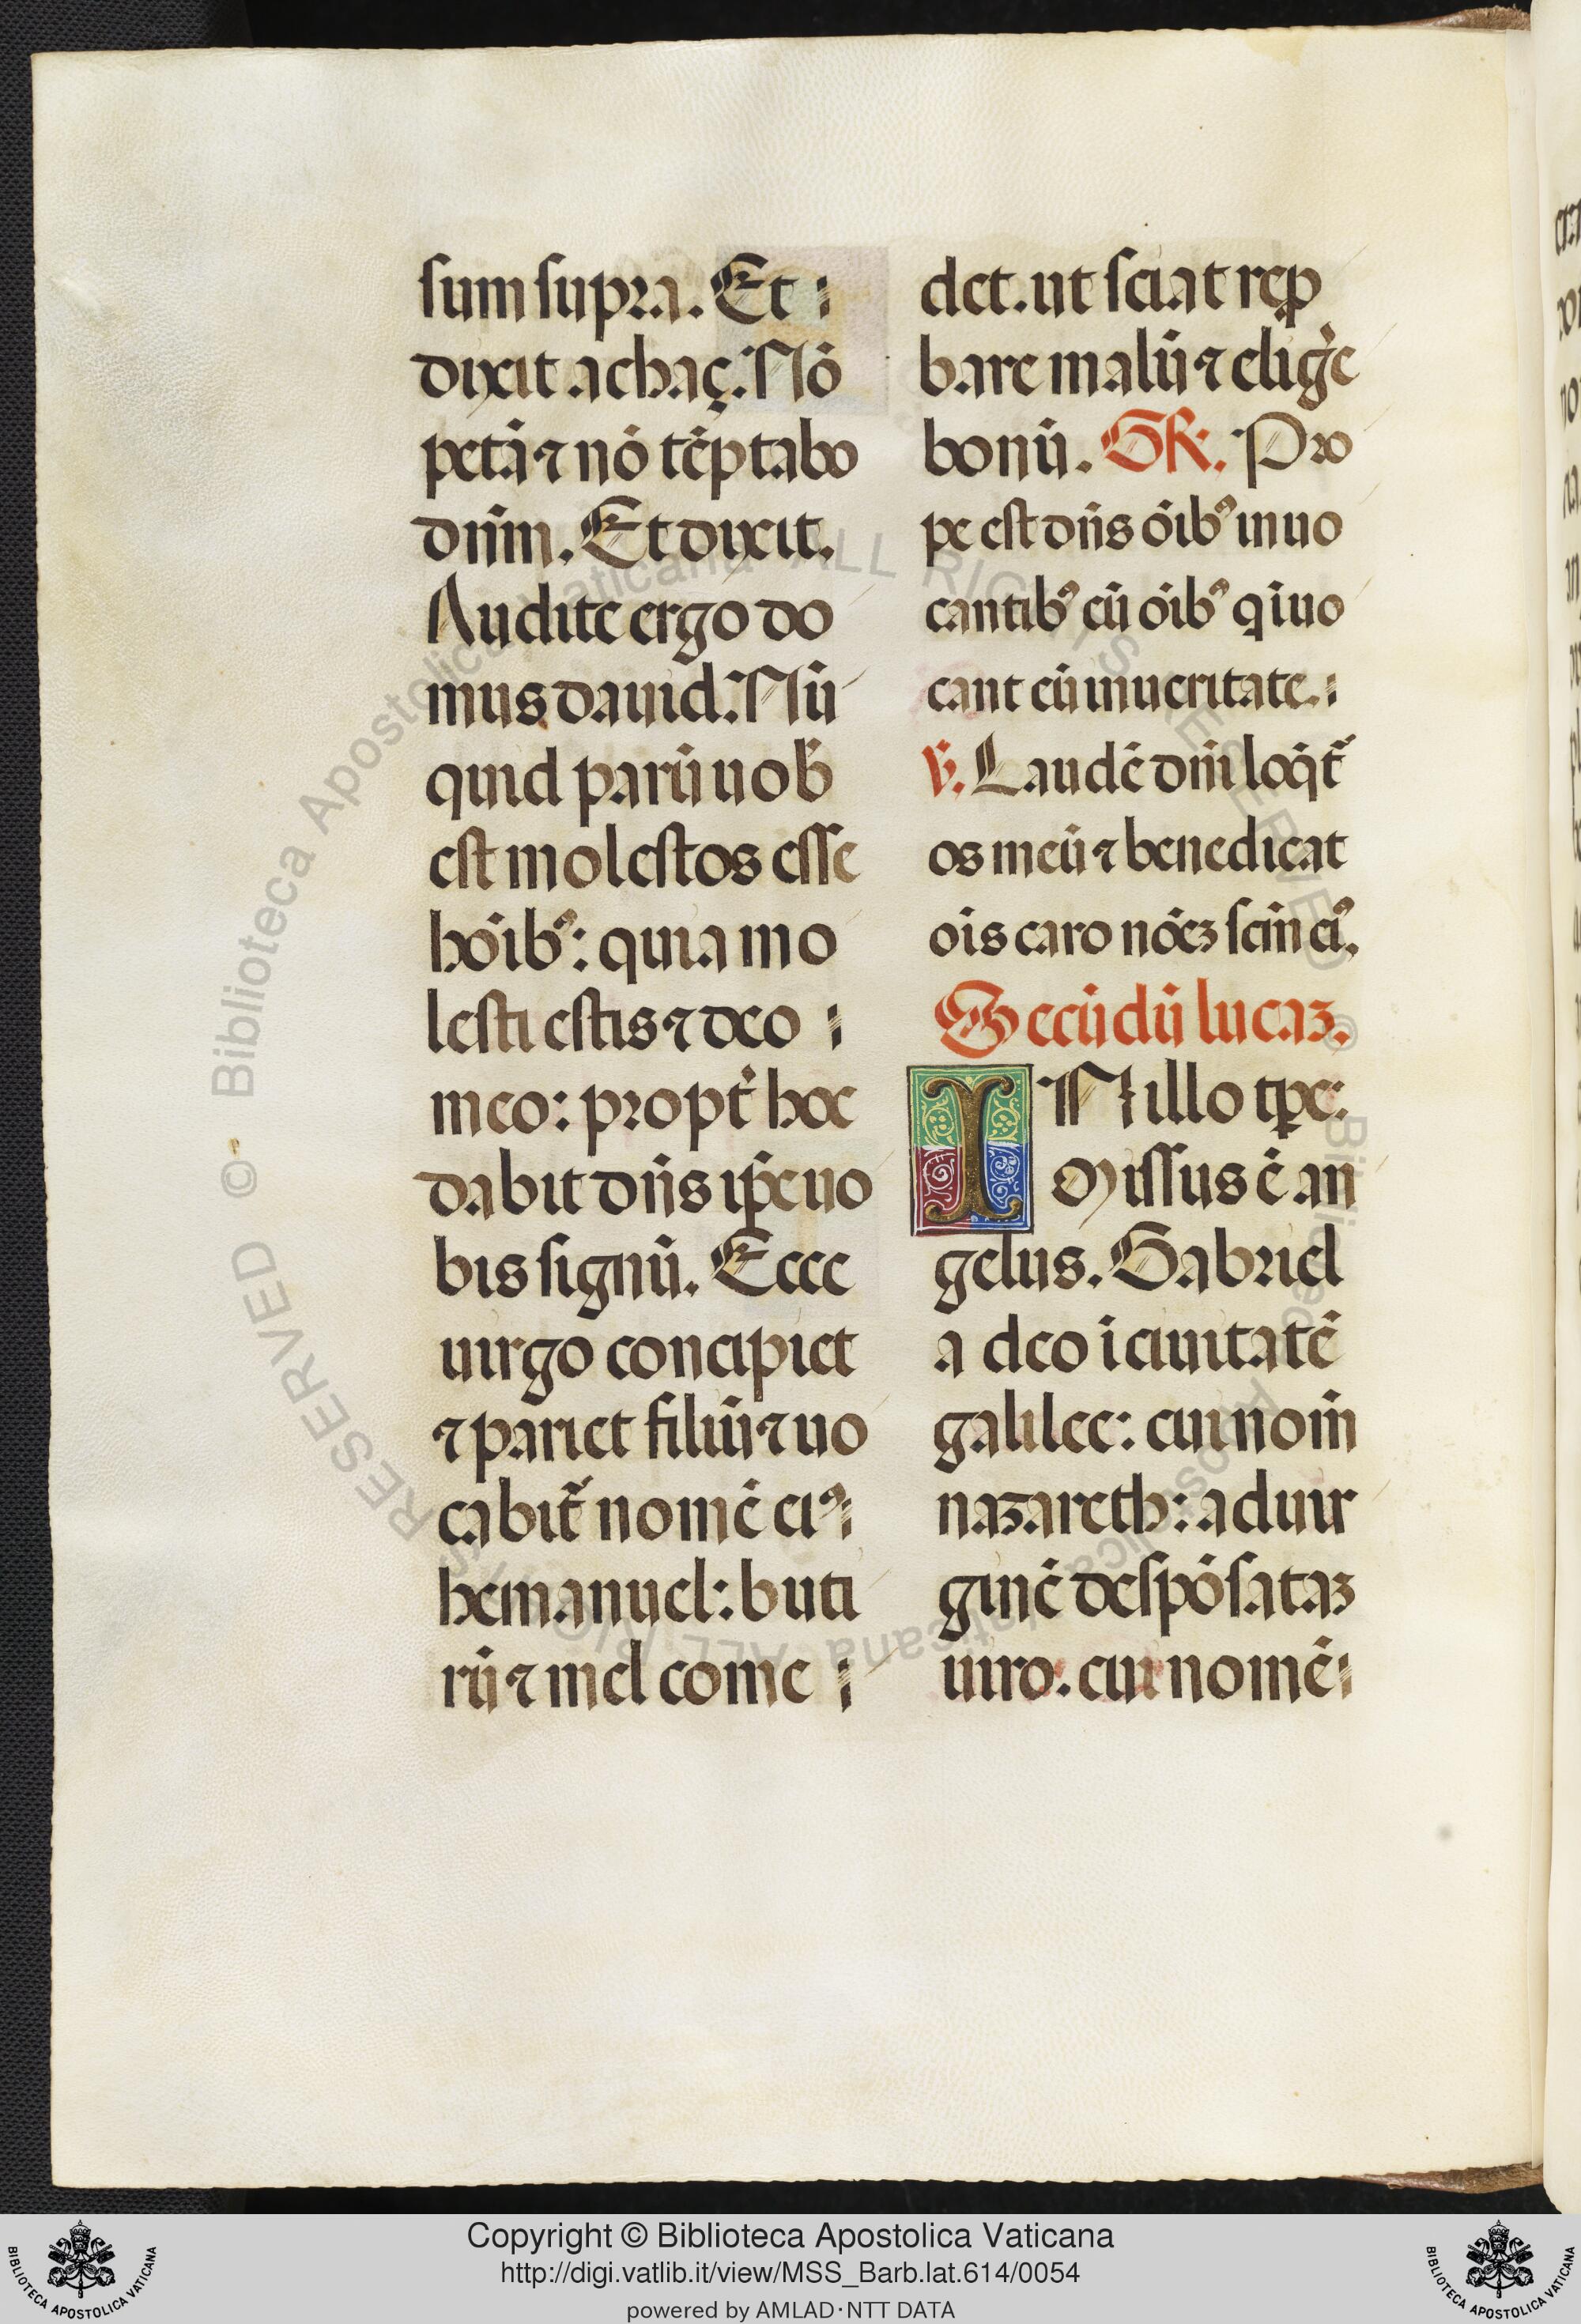 sum supra. Et
dixit achaç. Nō
petā ⁊ nō tēptabo
dn̄m. Et dixit.
Audite ergo do
mus dauid. Nū
quid parū uob̄
est molestos esse
hōib⁹: quia mo
lesti estis ⁊ deo
meo: propt̄ hoc
dabit dn̄s ip̄e uo
bis signū. Ecce
uirgo concipiet
⁊ pariet filiū ⁊ uo
cabit̄ nomē ei⁹
hemanuel: buti
rū ⁊ mel come
det. ut sciat rep̄
bare malū ⁊ eliḡe
bonū. GR. Pro
pe est dn̄s ōib⁹ inuo
cantib⁹ eū ōib⁹ qi uo
cant eū in ueritate.
V̄. Laudē dn̄i loq̄t̄
os meū ⁊ benedicat
ōis caro nōeʒ scm̄ ei⁹.
Secūdū lucaʒ.
IN illo tp̄e:
Missus ē an
gelus. Gabriel
a deo ī ciuitatē
galilee: cui nom̄
nazareth: ad uir
ginē despōsataʒ
uiro: cui nomē
© Biblioteca Apostolica Vaticana ALL RIGHTS RESERVED © Biblioteca Apostolica Vaticana ALL RIGHTS RESERVED
Copyright © Biblioteca Apostolica Vaticana
http://digi.vatlib.it/view/MSS_Barb.lat.614/0054
powered by AMLAD·NTT DATA
BIBLIOTECA APOSTOLICA VATICANA
BIBLIOTECA APOSTOLICA VATICANA